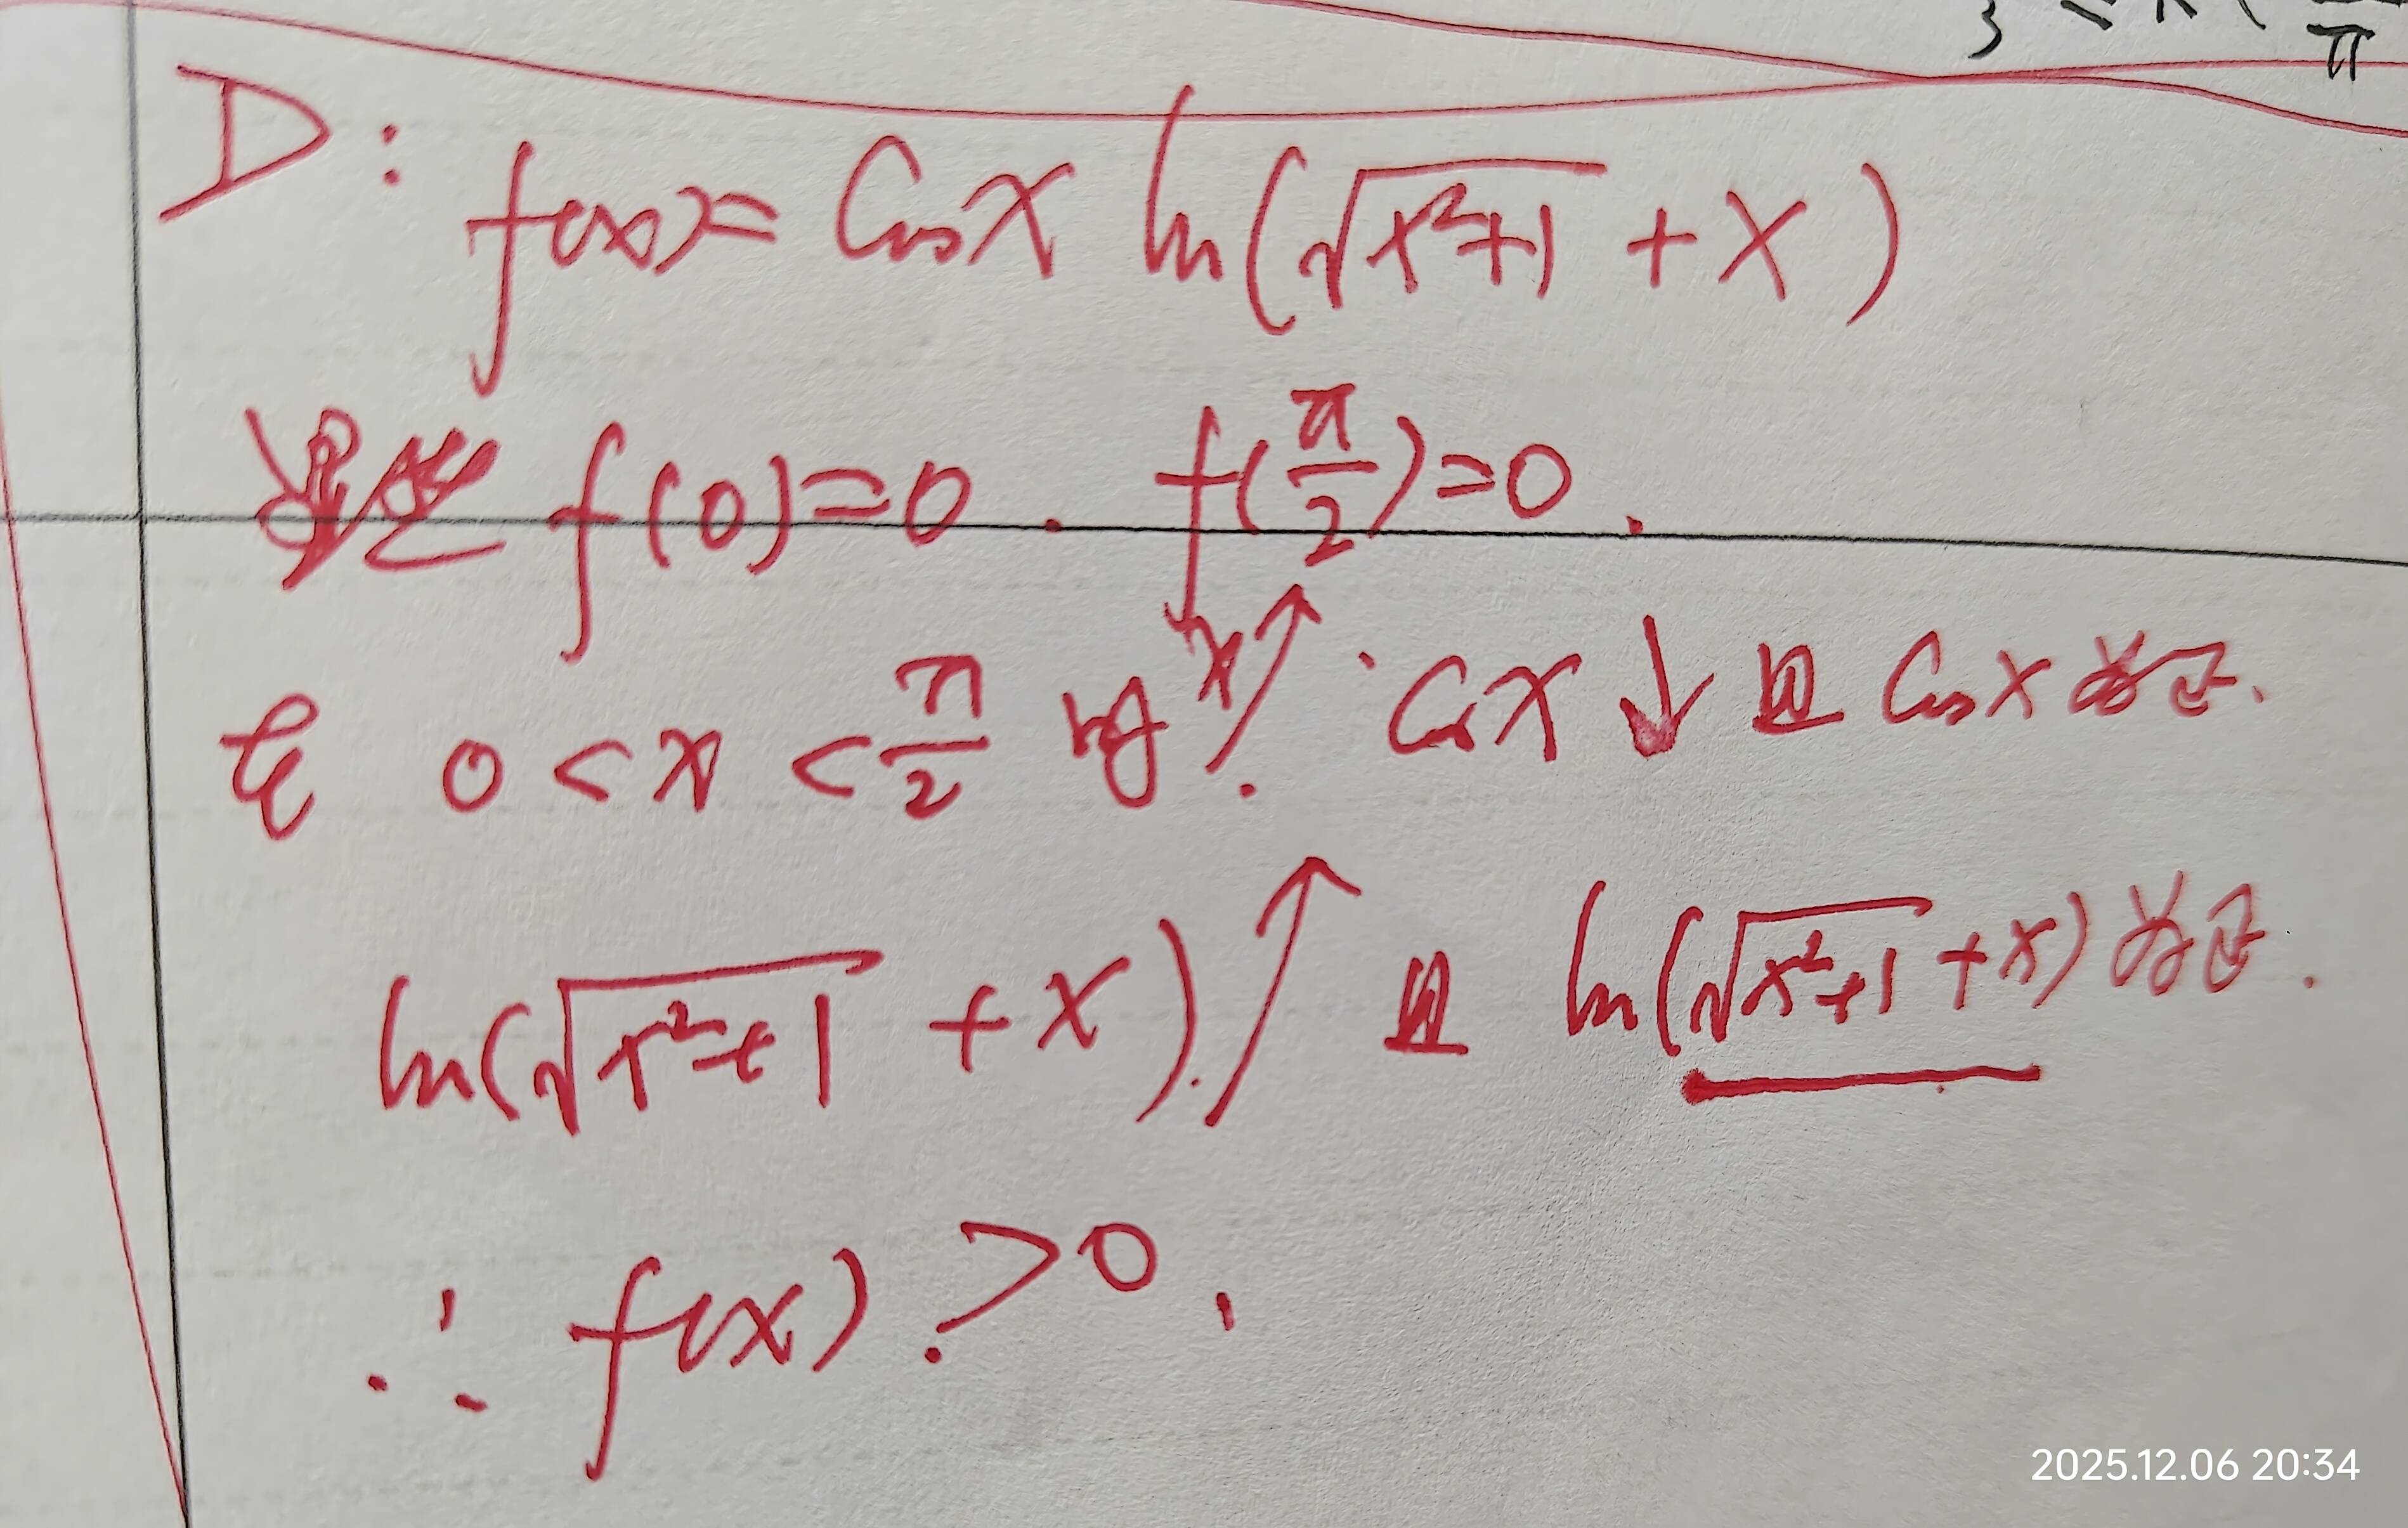 D: f(x)= Cosx ln(√x²+1 + x)
f(0)=0. f(π/2)=0.
在 0<x<π/2 时 x↗. Cosx↓且 Cosx为正.
ln(√x²+1 + x).↗ 且 ln(√x²+1 + x)为正.
∴ f(x)>0.
2025.12.06 20:34